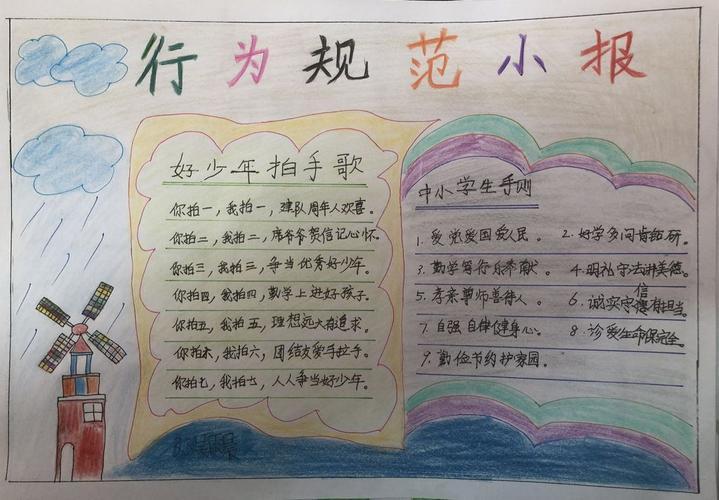 行为规范小报
好少年拍手歌
你拍一，我拍一，建队周年人欢喜。
你拍二，我拍二，席爷爷贺信记心怀。
你拍三，我拍三，争当优秀好少年。
你拍四，我拍四，勤学上进好孩子。
你拍五，我拍五，理想远大有追求。
你拍六，我拍六，团结友爱手拉手。
你拍七，我拍七，人人争当好少年。
中小学生手则
1. 爱党爱国爱人民。 2. 好学多问肯钻研。
3. 勤学笃行乐奉献。 4. 明礼守法讲美德。
5. 孝亲尊师善待人。 6. 诚实守信有担当。
7. 自强自律健身心。 8. 珍爱生命保安全。
9. 勤俭节约护家园。